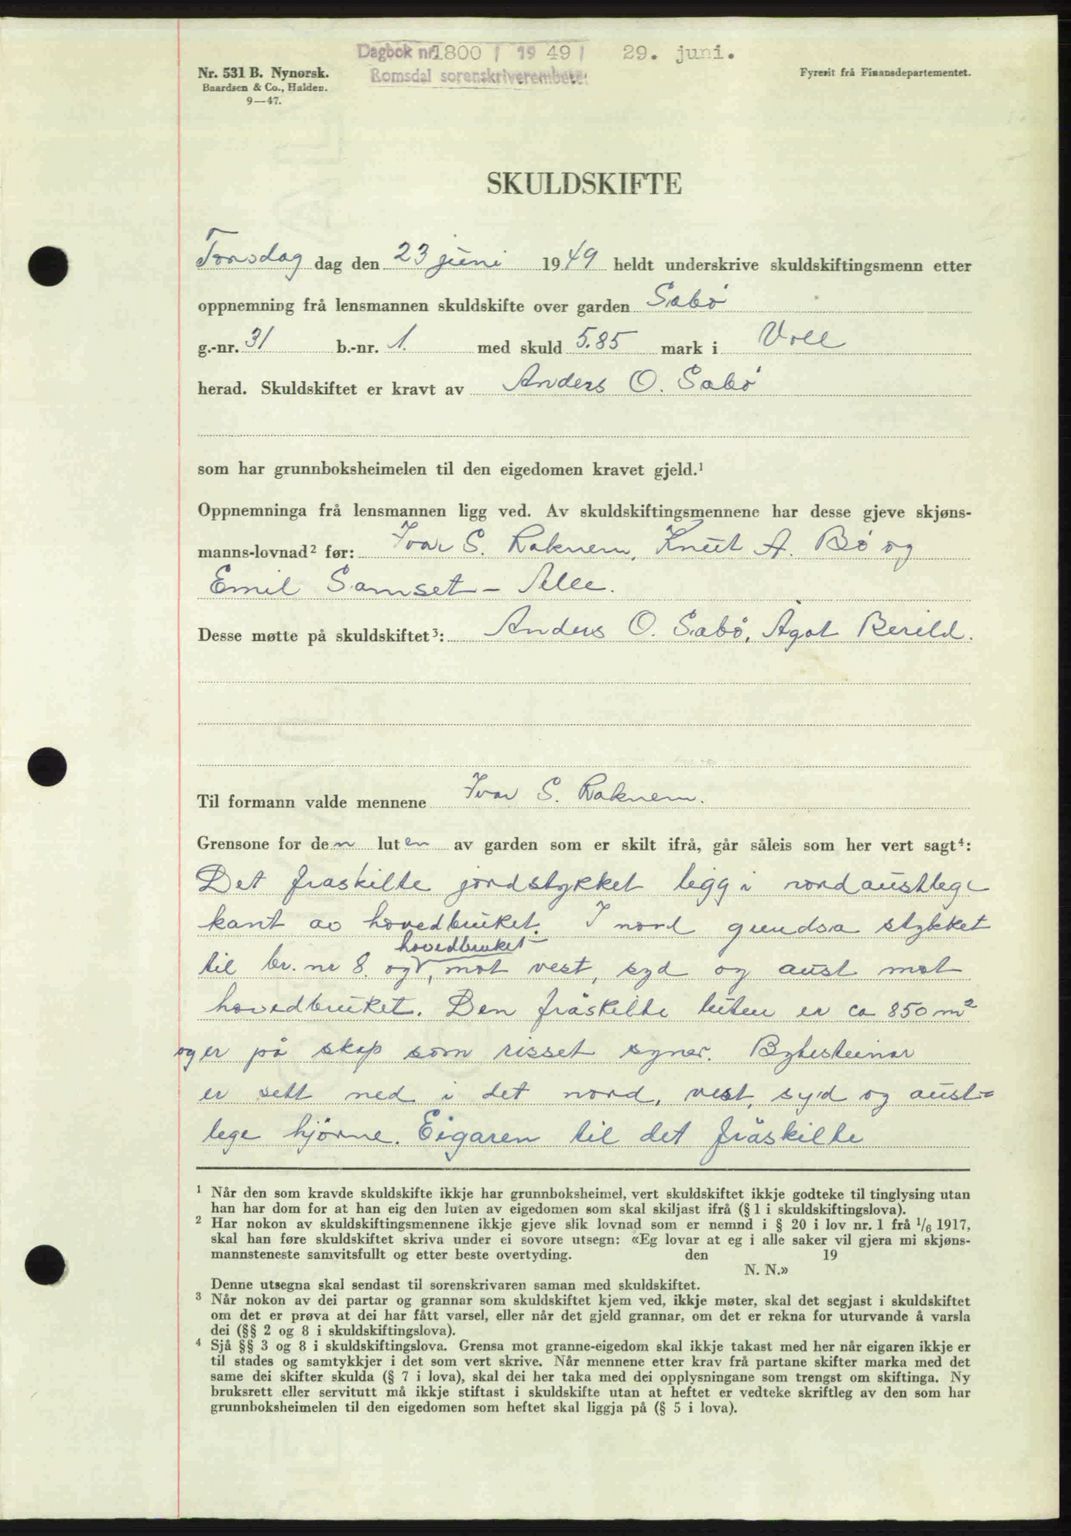 Dagbok nr. 1800 / 19 49 / 29. juni.
Romsdal sorenskriverembete
Nr. 531 B. Nynorsk.
Baardsen & Co., Halden.
9—47.
Fyresit frå Finansdepartementet.
SKULDSKIFTE
Torsdag dag den 23 juni 1949 heldt underskrive skuldskiftingsmenn etter
oppnemning frå lensmannen skuldskifte over garden Sæbø
g.-nr. 31 b.-nr. 1. med skuld 5.85 mark i Voll
herad. Skuldskiftet er kravt av Anders O. Sæbø
som har grunnboksheimelen til den eigedomen kravet gjeld.¹
Oppnemninga frå lensmannen ligg ved. Av skuldskiftingsmennene har desse gjeve skjøns-
manns-lovnad² før: Ivar S. Raknem, Knut A. Bø og
Emil Samset - Alle.
Desse møtte på skuldskiftet³: Anders O. Sæbø, Ågot Berild.
Til formann valde mennene Ivar S. Raknem.
Grensone for den luten av garden som er skilt ifrå, går såleis som her vert sagt⁴:
Det fraskilte jordstykket legg i nordaustlege
kant av hovedbruket. I nord grendsa stykket
hovedbruket
til br. nr 8. og, mot vest, syd og aust mot
hovedbruket. Den fråskilte luten er ca 850 m²
og er på skap som risset syner. Bytesteinar
er sett ned i det nord, vest, syd og aust-
lege hjørne. Eigaren til det fråskilte
¹ Når den som kravde skuldskifte ikkje har grunnboksheimel, vert skuldskiftet ikkje godteke til tinglysing utan
han har dom for at han eig den luten av eigedomen som skal skiljast ifrå (§ 1 i skuldskiftingslova).
² Har nokon av skuldskiftingsmennene ikkje gjeve slik lovnad som er nemnd i § 20 i lov nr. 1 frå 1/6 1917,
skal han føre skuldskiftet skriva under ei sovore utsegn: «Eg lovar at eg i alle saker vil gjera mi skjøns-
mannsteneste samvitsfullt og etter beste overtyding. den 19
N. N.»
Denne utsegna skal sendast til sorenskrivaren saman med skuldskiftet.
³ Når nokon av dei partar og grannar som skuldskiftet kjem ved, ikkje møter, skal det segjast i skuldskiftet
om det er prøva at dei har fått varsel, eller når det gjeld grannar, om det er rekna for uturvande å varsla
dei (§§ 2 og 8 i skuldskiftingslova).
⁴ Sjå §§ 3 og 8 i skuldskiftingslova. Grensa mot granne-eigedom skal ikkje takast med her når eigaren ikkje er
til stades og samtykkjer i det som vert skrive. Når mennene etter krav frå partane skifter marka med det
same dei skifter skulda (§ 7 i lova), skal dei her taka med dei opplysningane som trengst om skiftinga. Ny
bruksrett eller servitutt må ikkje stiftast i skuldskifte utan at heftet er vedteke skriftleg av den som har
grunnboksheimelen til den eigedomen som heftet skal liggja på (§ 5 i lova).